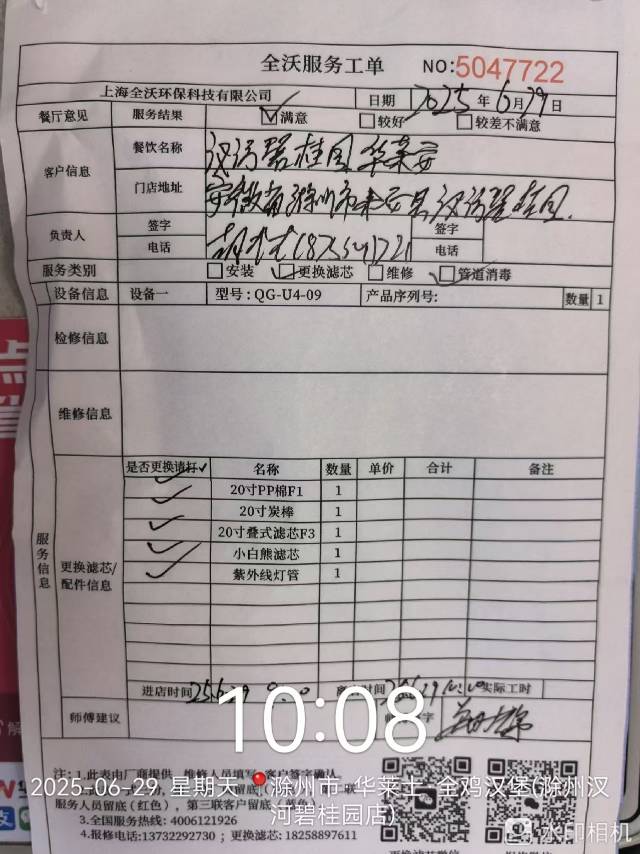 全沃服务工单 NO:5047722
上海全沃环保科技有限公司 日期 2025年6月29日
餐厅意见 服务结果 ☑满意 □较好 □较差不满意
客户信息 餐饮名称 汉河碧桂园华莱士
门店地址 安徽省滁州市来安县汉河碧桂园
负责人 签字 签字
电话 电话
服务类别 □安装 ☑更换滤芯 □维修 ☑管道消毒
设备信息 设备一 型号:QG-U4-09 产品序列号: 数量 1
检修信息
维修信息
服务信息
更换滤芯/配件信息
是否更换请打✓ 名称 数量 单价 合计 备注
✓ 20寸PP棉F1 1
✓ 20寸炭棒 1
✓ 20寸叠式滤芯F3 1
✓ 小白熊滤芯 1
✓ 紫外线灯管 1
进店时间 25.6.29 时间 实际工时
师傅建议 字
10:08
注:1.此表由厂商提供,维修人员填写,客户签字确认
服务人员留底(红色),第三联客户留底
3.全国服务热线:4006121926
4.报修电话:13732292730;更换滤芯:18258897611
2025-06-29 星期天 滁州市·华莱士·全鸡汉堡(滁州汉河碧桂园店)
水印相机